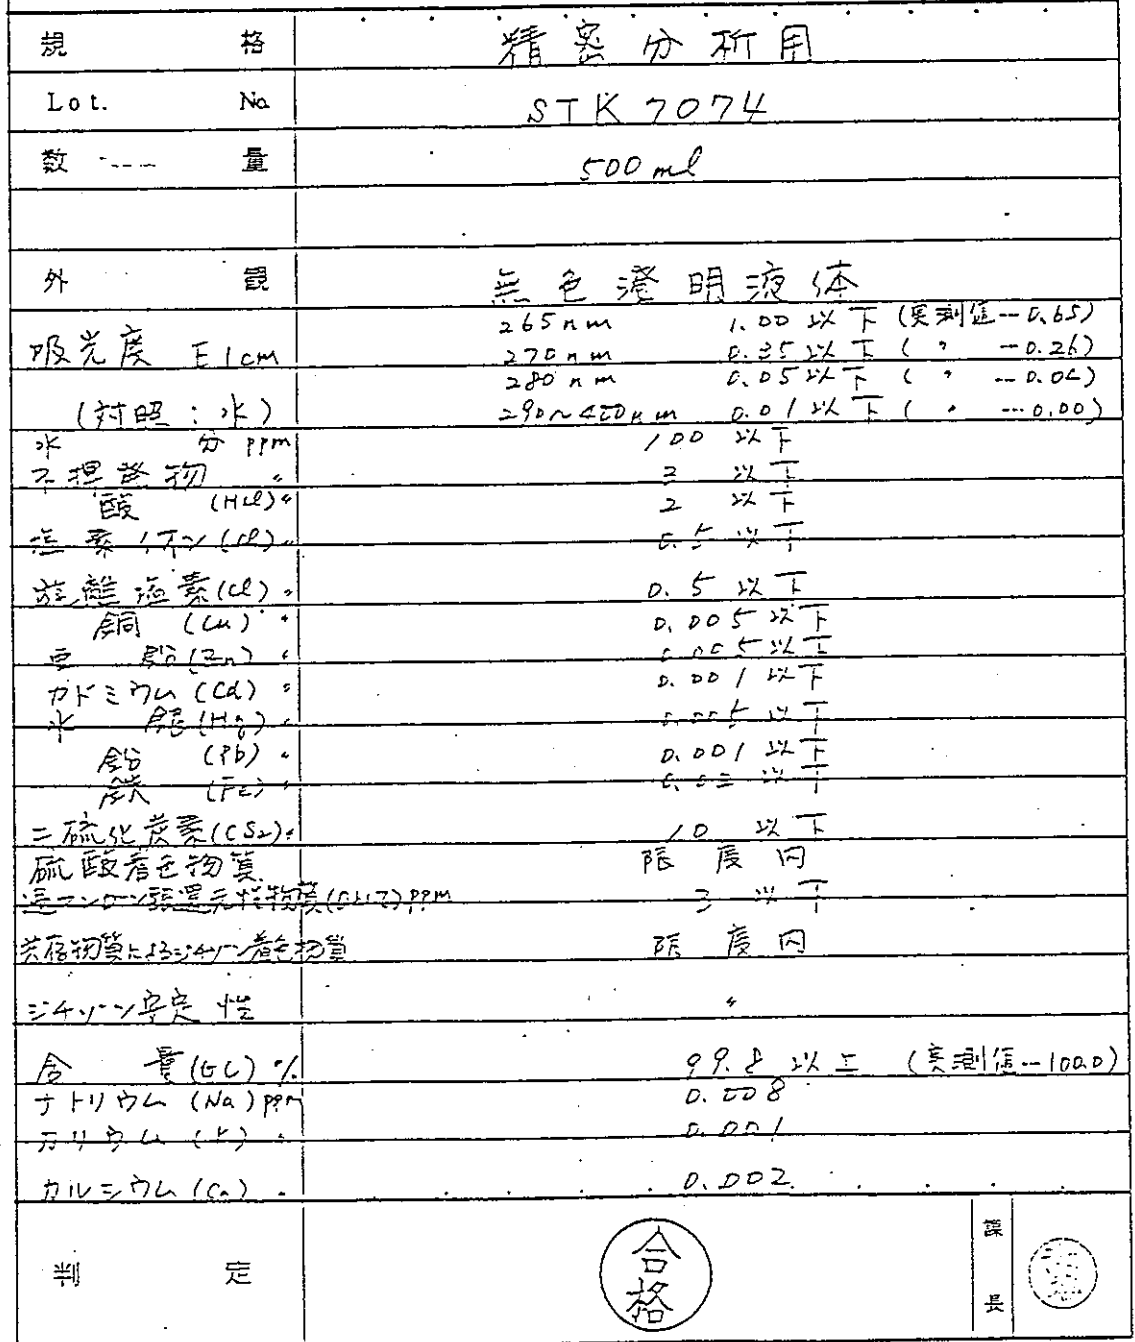 規 格 精密分析用
Lot. No. STK7074
数 量 500 ml
外 観 無色澄明液体
吸光度 E1cm 265nm 1.00以下 (実測値--0.65)
270nm 0.35以下 ( 〃 --0.26)
280nm 0.05以下 ( 〃 --0.04)
(対照:水) 290~420nm 0.01以下 ( 〃 ---0.00)
水 分 ppm 100以下
不揮発物 〃 以下
酸 (HCl) 〃 2 以下
塩素イオン(Cl) 〃 0.5以下
遊離塩素(Cl) 〃 0.5以下
銅 (Cu) 〃 0.005以下
亜 鉛(Zn) 〃 0.005以下
カドミウム (Cd) 〃 0.001以下
水 銀(Hg) 〃 0.005以下
鉛 (Pb) 〃 0.001以下
鉄 (Fe) 〃 以下
二硫化炭素(CS2) 〃 10 以下
硫酸着色物質 限度内
過マンガン酸還元性物質 ppm 3 以下
共存物質によるジチゾン着色物質 限度内
ジチゾン安定性 〃
含 量(GC) % 99.8以上 (実測値--100.0)
ナトリウム (Na) ppm 0.008
カリウム (K) 〃 0.001
カルシウム (Ca) 〃 0.002
判 定 合格 課長